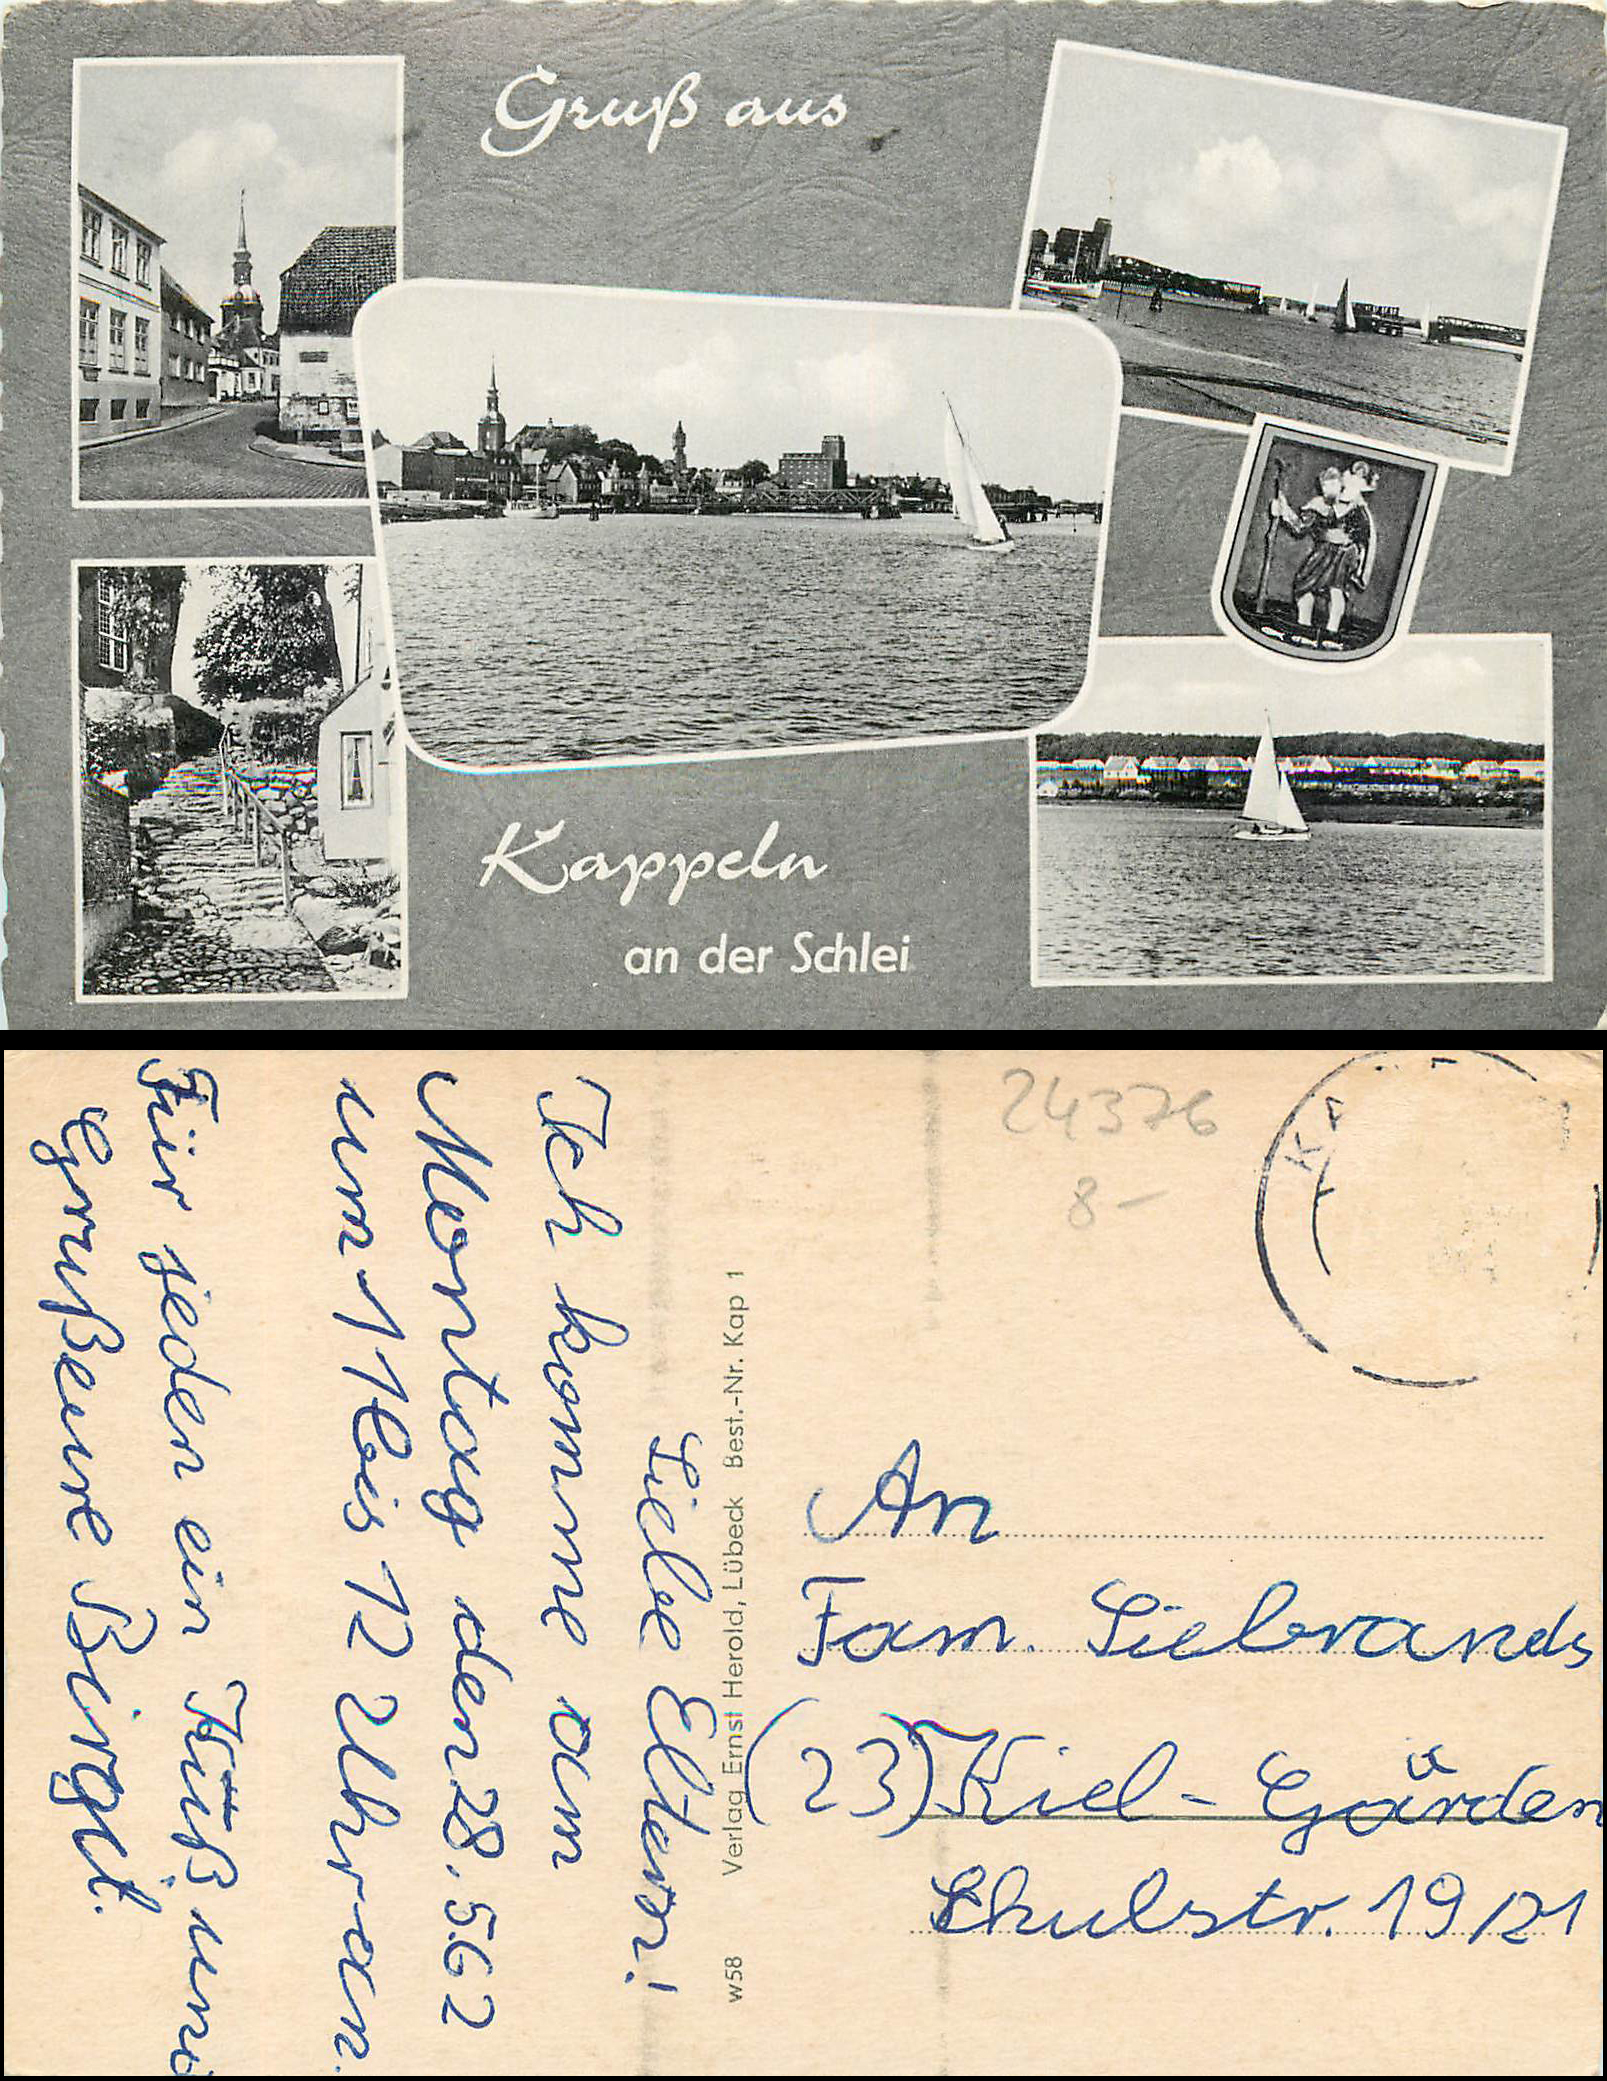 Gruß aus
Kappeln
an der Schlei
24376
8-
Liebe Eltern!
Ich komme am
Montag den 28.562
um 11 bis 12 Uhr an.
Für jeden ein Küß und
Grußeure Birgit.
Verlag Ernst Herold, Lübeck Best.-Nr. Kap 1
w58
An
Fam. Siebrands
(23) Kiel - Gärden
Schulstr. 19/21